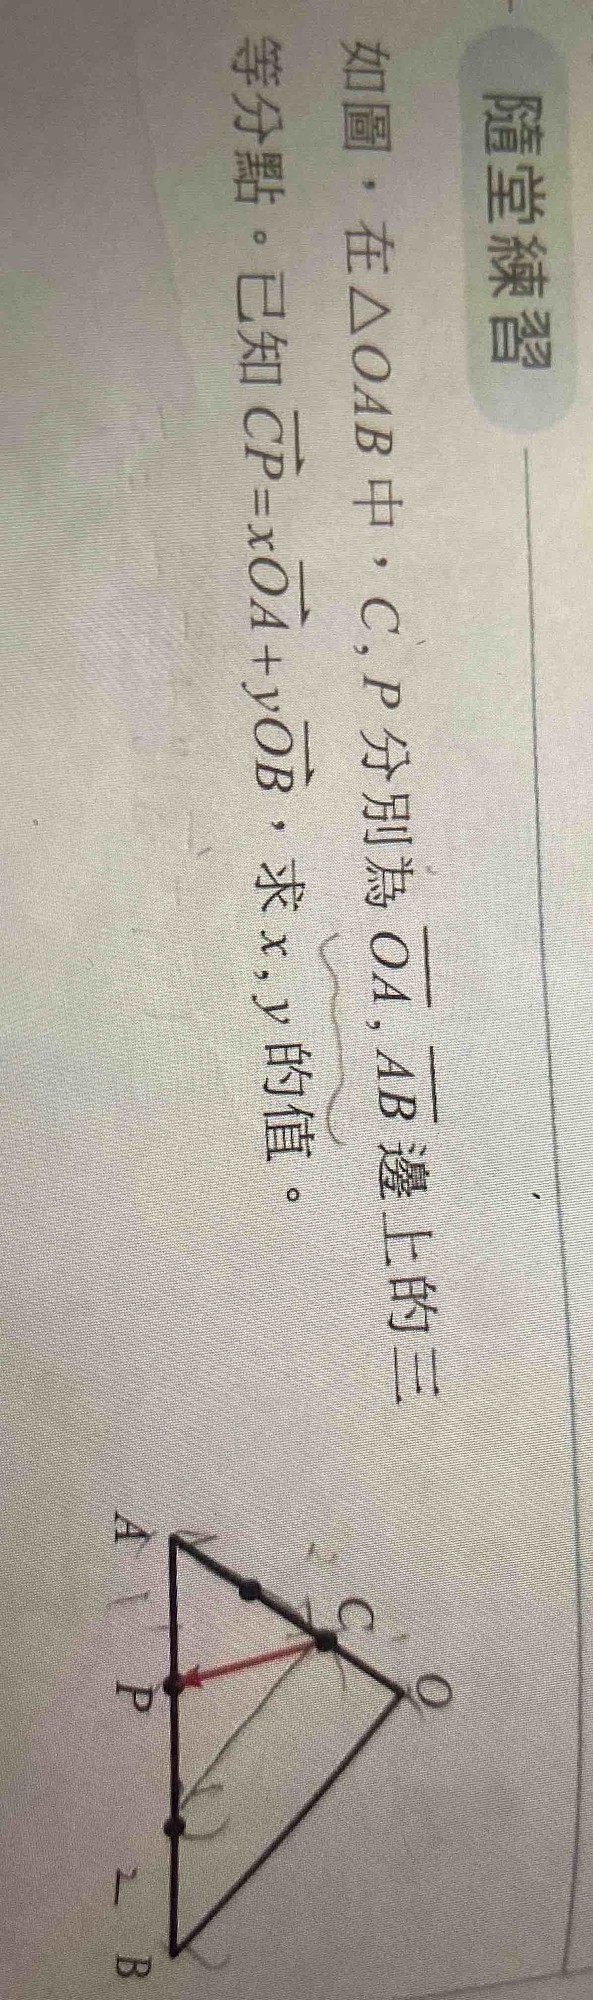 隨堂練習
如圖，在△OAB中，C, P 分別為 $\overline{OA}$, $\overline{AB}$ 邊上的三
等分點。已知 $\overrightarrow{CP}$=x$\overrightarrow{OA}$+y$\overrightarrow{OB}$，求 x, y 的值。
O
C
A
P
B
1
2